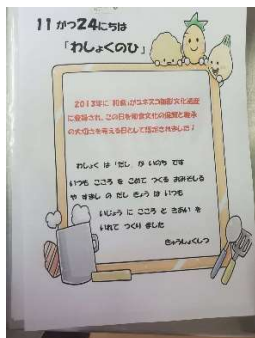 11 がつ24にちは
「わしょくのひ」
2013年に「和食」がユネスコ無形文化遺産
に登録され、この日を和食文化の保護と継承
の大切さを考える日として認定されました！
わしょく は 「だし」 が いのち です
いつも こころ を こめて つくる おみそしる
や すまし の だし きょう は いつも
いじょう に こころ と きあい を
いれて つくり ました
きゅうしょくしつ